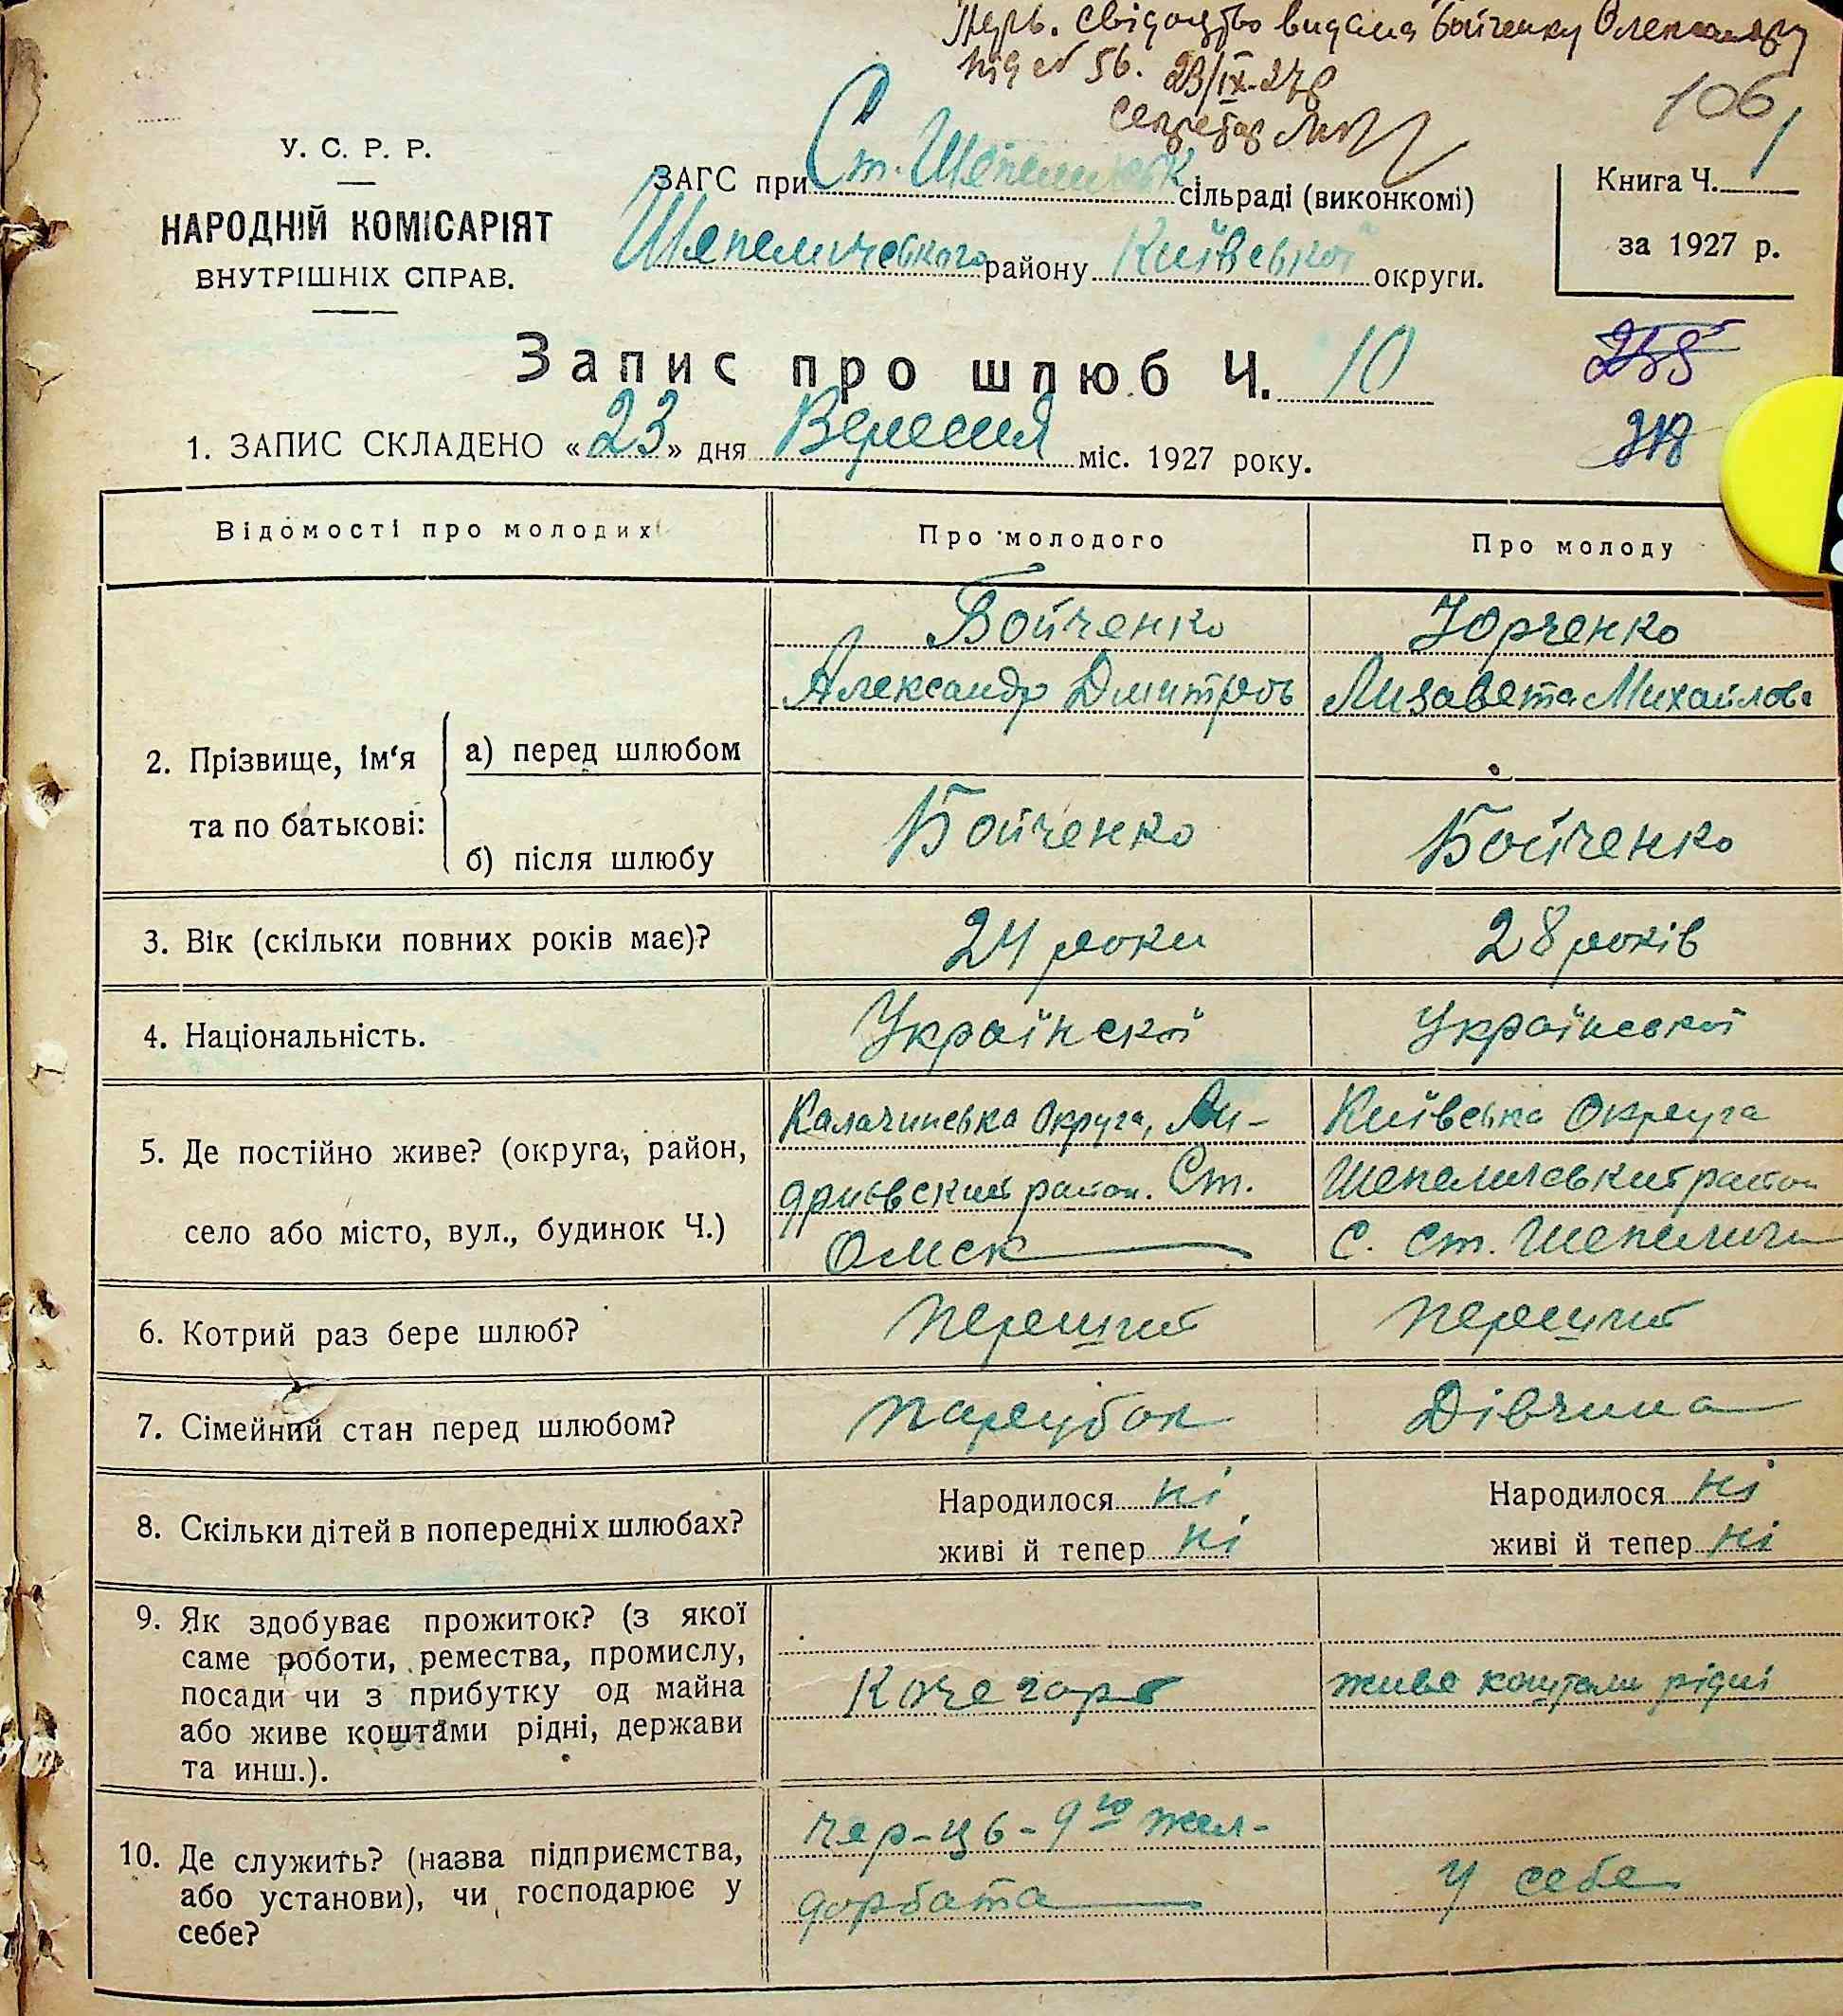 Перв. свідоцтво видана Бойченку Олександру
під № 56. 23/IX-27р
Секретар
106
У. С. Р. Р.
НАРОДНІЙ КОМІСАРІЯТ
ВНУТРІШНІХ СПРАВ.
ЗАГС при Ст. Шепелицьк сільраді (виконкомі)
Шепеличського району Київської округи.
Книга Ч. 1
за 1927 р.
Запис про шлюб Ч. 10
255
1. ЗАПИС СКЛАДЕНО «23» дня Вересня міс. 1927 року.
Відомості про молодих
Про молодого
Про молоду
2. Прізвище, ім'я та по батькові:
а) перед шлюбом
Бойченко
Александр Дмитров
Юрченко
Лизавета Михайлов
б) після шлюбу
Бойченко
Бойченко
3. Вік (скільки повних років має)?
24 роки
28 років
4. Національність.
Українскої
Української
5. Де постійно живе? (округа, район,
село або місто, вул., будинок Ч.)
Калачинська Округа, Ан-
дриевский район. Ст.
Омск
Київська Округа
Шепеличський район
С. Ст. Шепеличи
6. Котрий раз бере шлюб?
перший
перший
7. Сімейний стан перед шлюбом?
парубок
Дівчина
8. Скільки дітей в попередніх шлюбах?
Народилося ні
живі й тепер ні
Народилося ні
живі й тепер ні
9. Як здобуває прожиток? (з якої
саме роботи, ремества, промислу,
посади чи з прибутку од майна
або живе коштами рідні, держави
та инш.).
Кочегар
живе коштами рідні
10. Де служить? (назва підприємства,
або установи), чи господарює у
себе?
чер-ць-9го жел-
дорбата
У себе